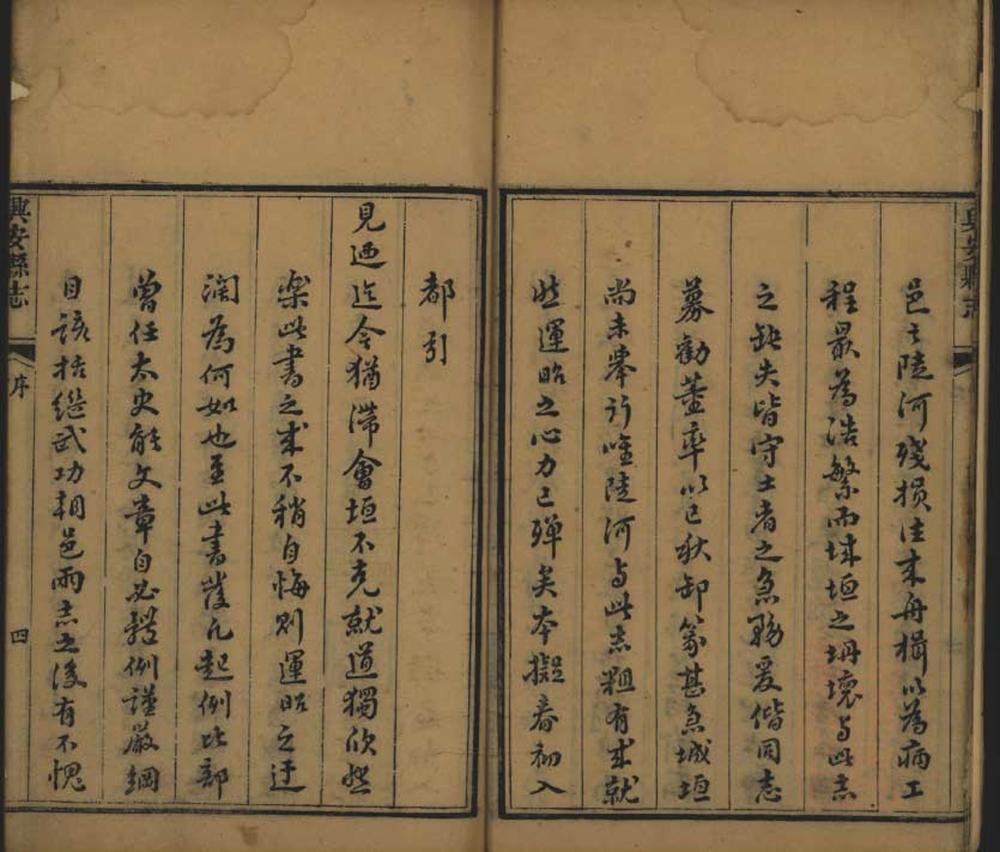 邑之陡河殘損往來舟楫以為病工
程最為浩繁而城垣之坍壞與此志
之缺失皆守土者之急務爰偕同志
募勸董率以己秋卸篆甚急城垣
尚未舉行唯陡河与此志粗有成就
然運昭之心力已殫矣本擬春初入
都引
見迺迄今猶滯會垣不克就道獨欣然
樂此書之成不稍自悔則運昭之迂
闊為何如也至此書發凡起例比部
曾任太史能文章自必體例謹嚴綱
目該括繼武功朝邑兩志之後有不愧
興安縣志
序
四
興安縣志